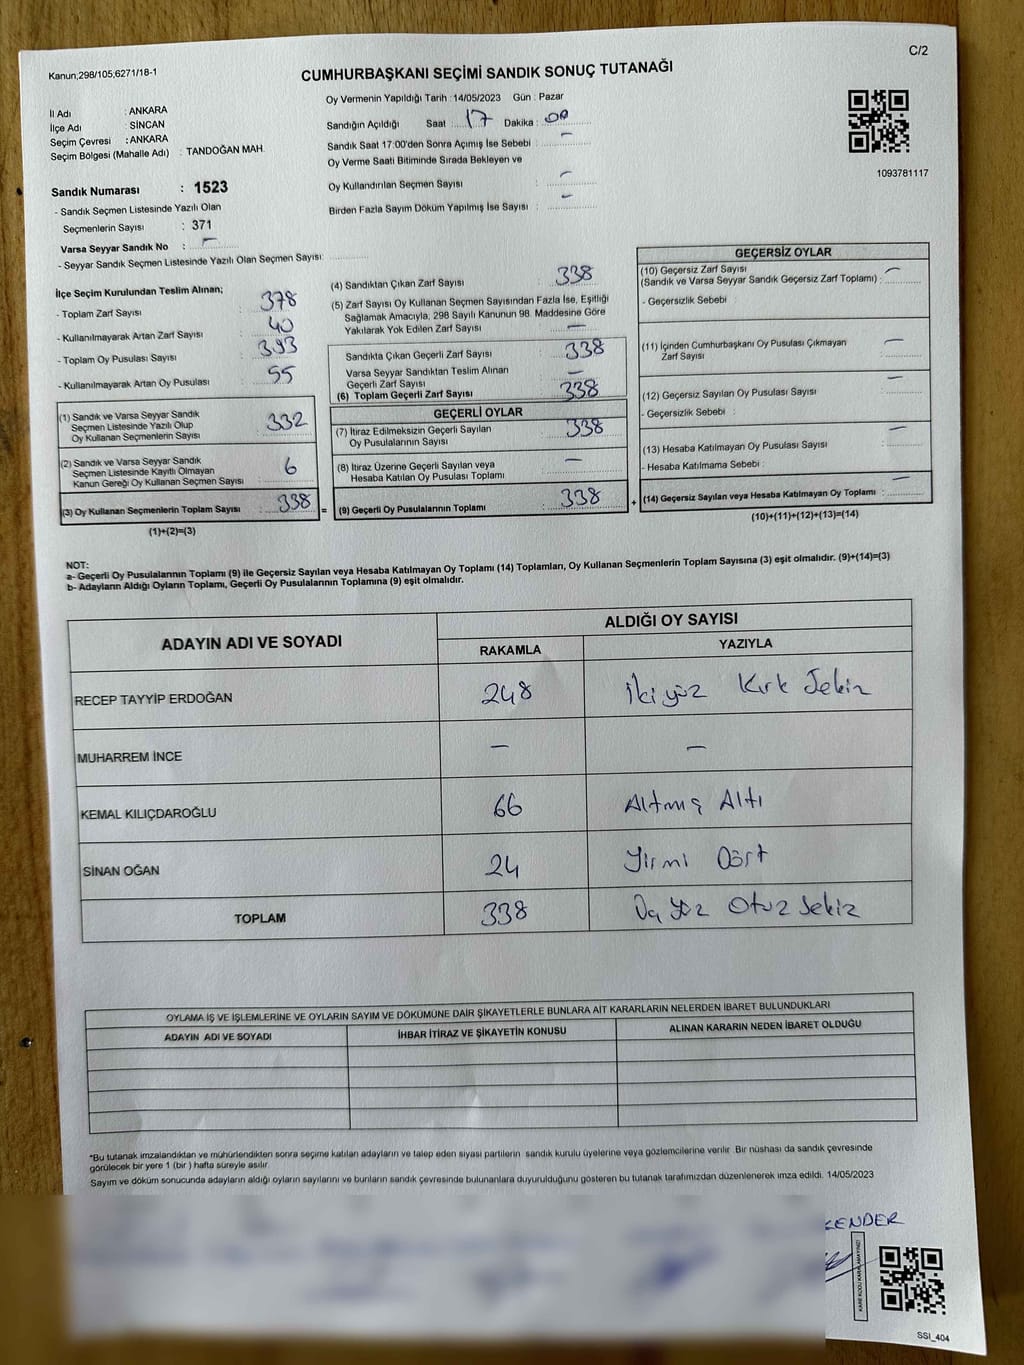 C/2
Kanun;298/105,6271/18-1
CUMHURBAŞKANI SEÇİMİ SANDIK SONUÇ TUTANAĞI
İl Adı : ANKARA
İlçe Adı : SİNCAN
Seçim Çevresi : ANKARA
Seçim Bölgesi (Mahalle Adı) : TANDOĞAN MAH.
Sandık Numarası : 1523
- Sandık Seçmen Listesinde Yazılı Olan
Seçmenlerin Sayısı : 371
Varsa Seyyar Sandık No : –
- Seyyar Sandık Seçmen Listesinde Yazılı Olan Seçmen Sayısı:
Oy Vermenin Yapıldığı Tarih : 14/05/2023 Gün : Pazar
Sandığın Açıldığı Saat : 17 Dakika : 00
Sandık Saat 17:00'den Sonra Açımış İse Sebebi : –
Oy Verme Saati Bitiminde Sırada Bekleyen ve
Oy Kullandırılan Seçmen Sayısı : –
Birden Fazla Sayım Döküm Yapılmış İse Sayısı : –
1093781117
İlçe Seçim Kurulundan Teslim Alınan;
- Toplam Zarf Sayısı : 378
- Kullanılmayarak Artan Zarf Sayısı : 40
- Toplam Oy Pusulası Sayısı : 393
- Kullanılmayarak Artan Oy Pusulası : 55
(1) Sandık ve Varsa Seyyar Sandık
Seçmen Listesinde Yazılı Olup
Oy Kullanan Seçmenlerin Sayısı : 332
(2) Sandık ve Varsa Seyyar Sandık
Seçmen Listesinde Kayıtlı Olmayan
Kanun Gereği Oy Kullanan Seçmen Sayısı : 6
(3) Oy Kullanan Seçmenlerin Toplam Sayısı : 338 =
(1)+(2)=(3)
(4) Sandıktan Çıkan Zarf Sayısı : 338
(5) Zarf Sayısı Oy Kullanan Seçmen Sayısından Fazla İse, Eşitliği
Sağlamak Amacıyla, 298 Sayılı Kanunun 98. Maddesine Göre
Yakılarak Yok Edilen Zarf Sayısı : –
Sandıkta Çıkan Geçerli Zarf Sayısı : 338
Varsa Seyyar Sandıktan Teslim Alınan
Geçerli Zarf Sayısı : –
(6) Toplam Geçerli Zarf Sayısı : 338
GEÇERLİ OYLAR
(7) İtiraz Edilmeksizin Geçerli Sayılan
Oy Pusulalarının Sayısı : 338
(8) İtiraz Üzerine Geçerli Sayılan veya
Hesaba Katılan Oy Pusulası Toplamı : –
(9) Geçerli Oy Pusulalarının Toplamı : 338 +
GEÇERSİZ OYLAR
(10) Geçersiz Zarf Sayısı
(Sandık ve Varsa Seyyar Sandık Geçersiz Zarf Toplamı) : –
- Geçersizlik Sebebi :
(11) İçinden Cumhurbaşkanı Oy Pusulası Çıkmayan
Zarf Sayısı : –
(12) Geçersiz Sayılan Oy Pusulası Sayısı : –
- Geçersizlik Sebebi :
(13) Hesaba Katılmayan Oy Pusulası Sayısı : –
- Hesaba Katılmama Sebebi :
(14) Geçersiz Sayılan veya Hesaba Katılmayan Oy Toplamı : –
(10)+(11)+(12)+(13)=(14)
NOT:
a- Geçerli Oy Pusulalarının Toplamı (9) ile Geçersiz Sayılan veya Hesaba Katılmayan Oy Toplamı (14) Toplamları, Oy Kullanan Seçmenlerin Toplam Sayısına (3) eşit olmalıdır. (9)+(14)=(3)
b- Adayların Aldığı Oyların Toplamı, Geçerli Oy Pusulalarının Toplamına (9) eşit olmalıdır.
ADAYIN ADI VE SOYADI
ALDIĞI OY SAYISI
RAKAMLA YAZIYLA
RECEP TAYYİP ERDOĞAN 248 İki yüz Kırk Sekiz
MUHARREM İNCE – –
KEMAL KILIÇDAROĞLU 66 Altmış Altı
SİNAN OĞAN 24 Yirmi Dört
TOPLAM 338 Üç Yüz Otuz Sekiz
OYLAMA İŞ VE İŞLEMLERİNE VE OYLARIN SAYIM VE DÖKÜMÜNE DAİR ŞİKAYETLERLE BUNLARA AİT KARARLARIN NELERDEN İBARET BULUNDUKLARI
ADAYIN ADI VE SOYADI İHBAR İTİRAZ VE ŞİKAYETİN KONUSU ALINAN KARARIN NEDEN İBARET OLDUĞU
*Bu tutanak imzalandıktan ve mühürlendikten sonra seçime katılan adayların ve talep eden siyasi partilerin sandık kurulu üyelerine veya gözlemcilerine verilir. Bir nüshası da sandık çevresinde
görülecek bir yere 1 (bir) hafta süreyle asılır.
Sayım ve döküm sonucunda adayların aldığı oyların sayılarını ve bunların sandık çevresinde bulunanlara duyurulduğunu gösteren bu tutanak tarafımızdan düzenlenerek imza edildi. 14/05/2023
KARE KODU KARALAMAYINIZ!
SSI_404